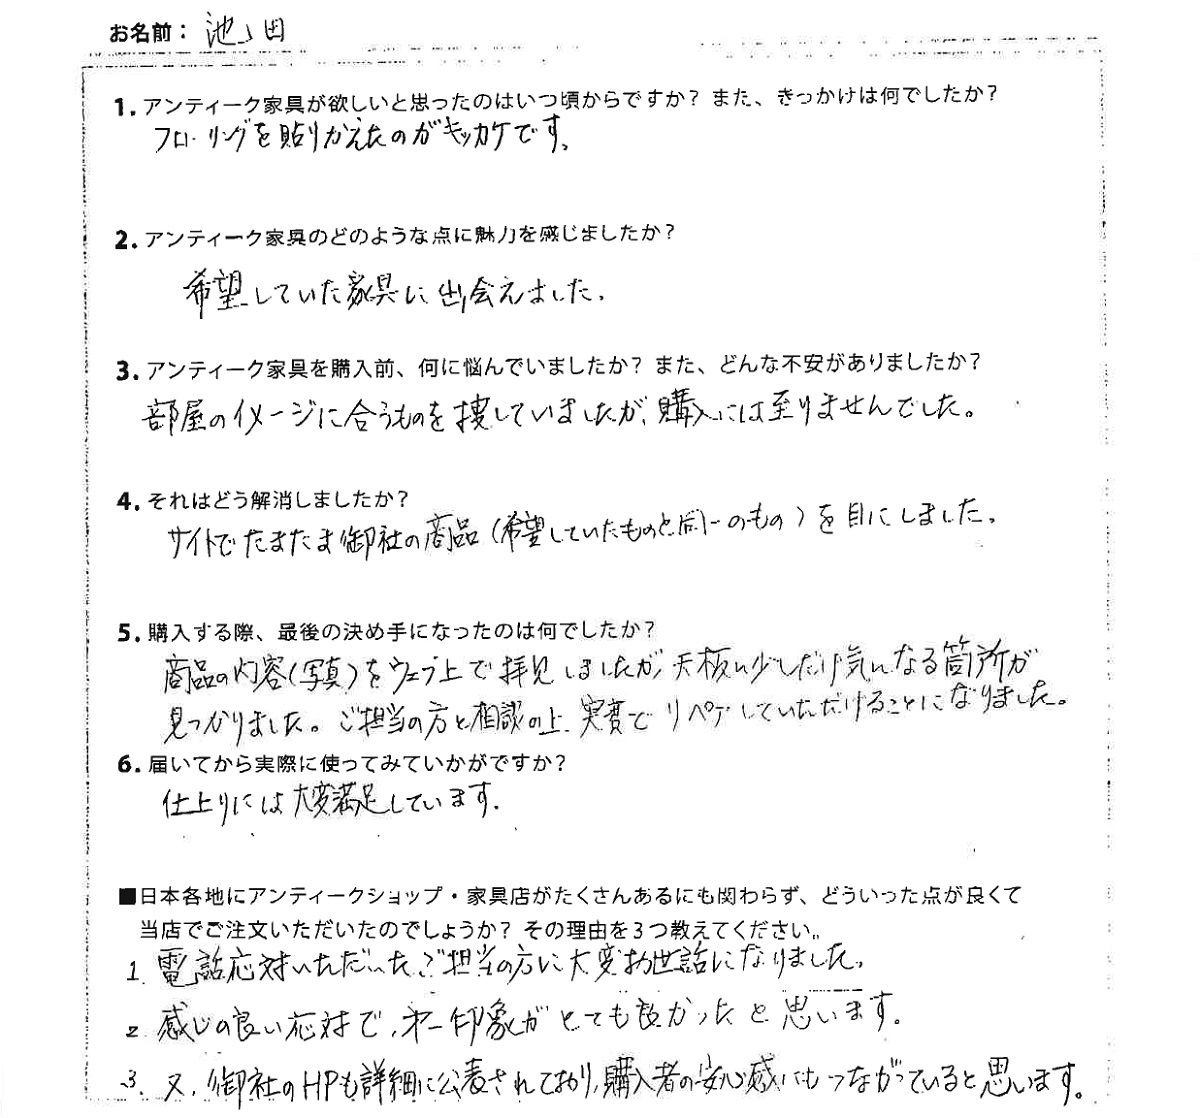 お名前： 池ノ田
1. アンティーク家具が欲しいと思ったのはいつ頃からですか？ また、きっかけは何でしたか？
フローリングを貼りかえたのがキッカケです。
2. アンティーク家具のどのような点に魅力を感じましたか？
希望していた家具に出会えました。
3. アンティーク家具を購入前、何に悩んでいましたか？ また、どんな不安がありましたか？
部屋のイメージに合うものを捜していましたが、購入には至りませんでした。
4. それはどう解消しましたか？
サイトでたまたま御社の商品（希望していたものと同一のもの）を目にしました。
5. 購入する際、最後の決め手になったのは何でしたか？
商品の内容（写真）をウェブ上で拝見しましたが、天板に少しだけ気になる箇所が
見つかりました。ご担当の方と相談の上、実費でリペアしていただけることになりました。
6. 届いてから実際に使ってみていかがですか？
仕上りには大変満足しています。
■日本各地にアンティークショップ・家具店がたくさんあるにも関わらず、どういった点が良くて
当店でご注文いただいたのでしょうか？ その理由を３つ教えてください。
1. 電話応対いただいたご担当の方に大変お世話になりました。
2. 感じの良い応対で、第一印象がとても良かったと思います。
3. 又、御社のHPも詳細に公表されており、購入者の安心感にもつながっていると思います。